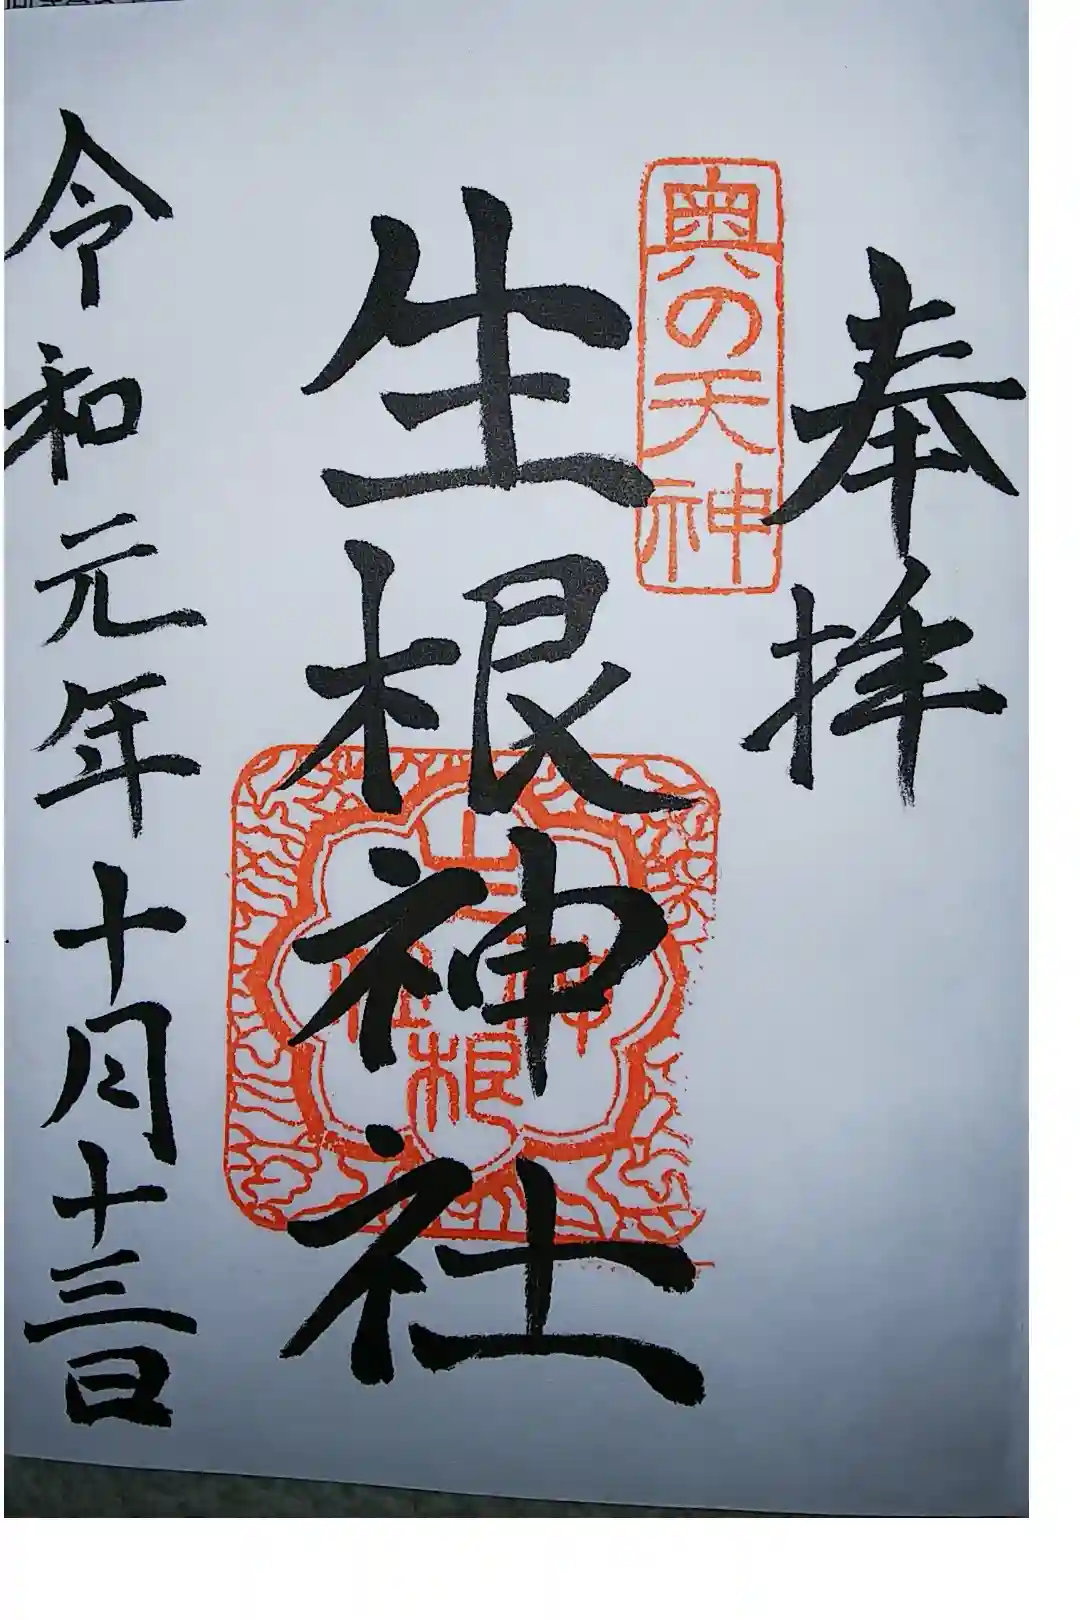 奉拝
奥の天神
生根神社
生根神社
令和元年十月十三日